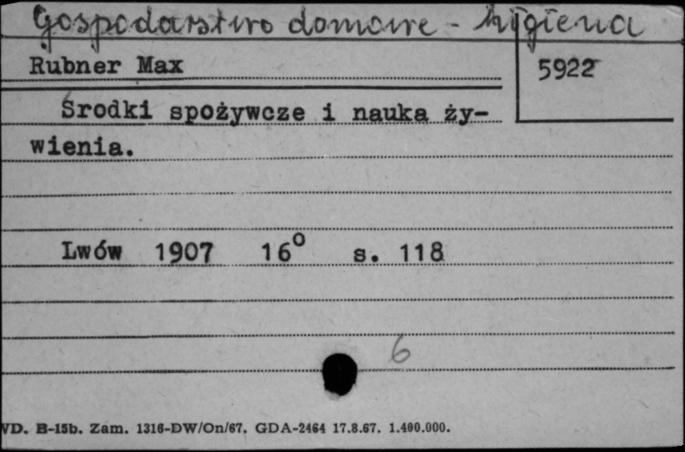 Gospodarstwo domowe - higiena
Rubner Max
5922
Środki spożywcze i nauka ży-
wienia.
Lwów 1907 16° s. 118
6
WD. B-15b. Zam. 1316-DW/On/67. GDA-2464 17.8.67. 1.400.000.